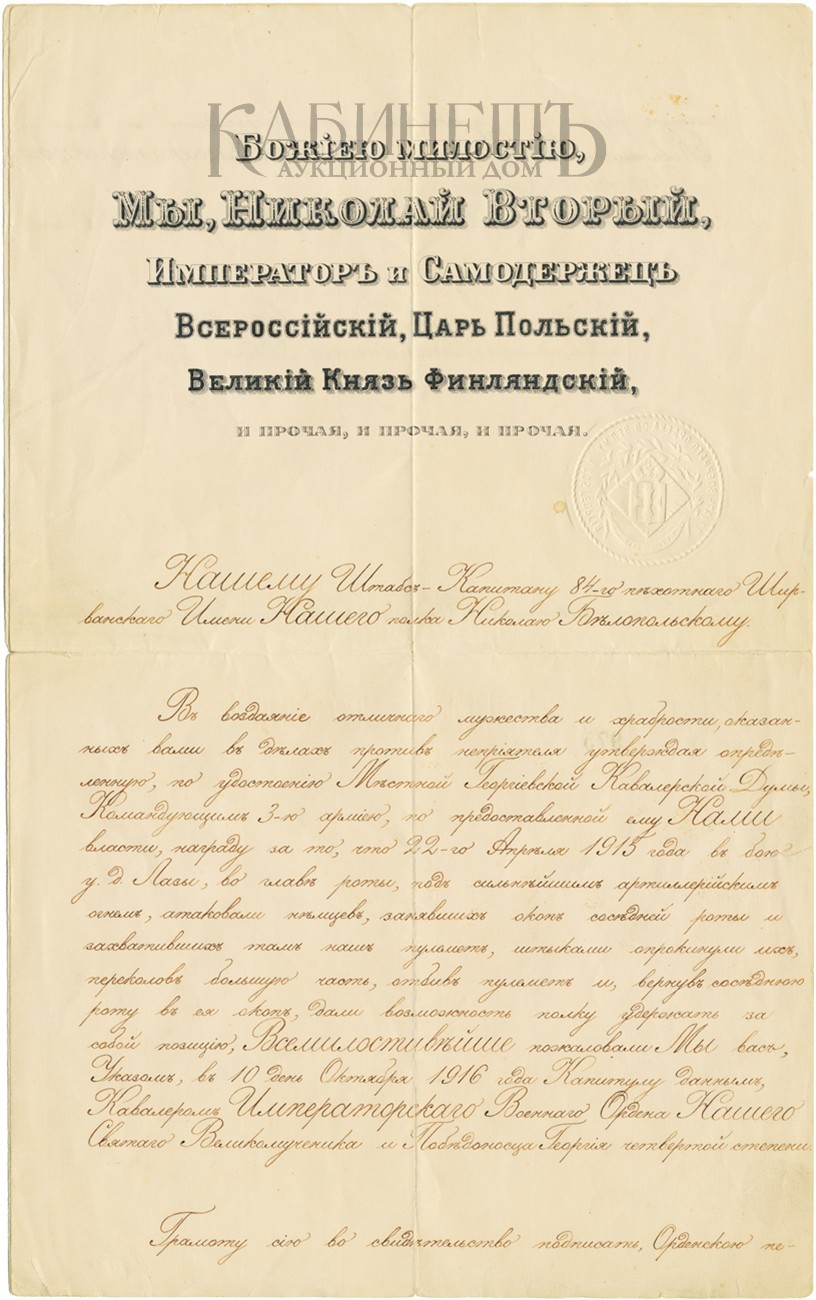 КАБИНЕТЪ
АУКЦИОННЫЙ ДОМ
БОЖІЕЮ МИЛОСТІЮ,
МЫ, НИКОЛАЙ ВТОРЫЙ,
ИМПЕРАТОРЪ и САМОДЕРЖЕЦЪ
ВСЕРОССІЙСКІЙ, ЦАРЬ ПОЛЬСКІЙ,
ВЕЛИКІЙ КНЯЗЬ ФИНЛЯНДСКІЙ,
И ПРОЧАЯ, И ПРОЧАЯ, И ПРОЧАЯ.
Нашему Штабсъ-Капитану 84-го пѣхотнаго Шир-
ванскаго Имени Нашего полка Николаю Бѣлопольскому.
Въ воздаяніе отличнаго мужества и храбрости, оказан-
ныхъ вами въ дѣлахъ противъ непріятеля утверждая опредѣ-
ленную, по удостоенію Мѣстной Георгіевской Кавалерской Думы,
Командующимъ 3-ю арміею, по предоставленной ему Нами
власти, награду за то, что 22-го Апрѣля 1915 года въ бою
у д. Лазы, во главѣ роты, подъ сильнѣйшимъ артиллерійскимъ
огнемъ, атаковали нѣмцевъ, занявшихъ окопъ сосѣдней роты и
захватившихъ тамъ нашъ пулеметъ, штыками опрокинули ихъ,
переколовъ большую часть, отбивъ пулеметъ и, вернувъ сосѣднюю
роту въ ея окопъ, дали возможность полку удержать за
собой позицію, Всемилостивѣйше пожаловали Мы васъ,
Указомъ, въ 10 день Октября 1916 года Капитулу даннымъ,
Кавалеромъ Императорскаго Военнаго Ордена Нашего
Святаго Великомученика и Побѣдоносца Георгія четвертой степени.
Грамоту сію во свидѣтельство подписать, Орденскою пе-